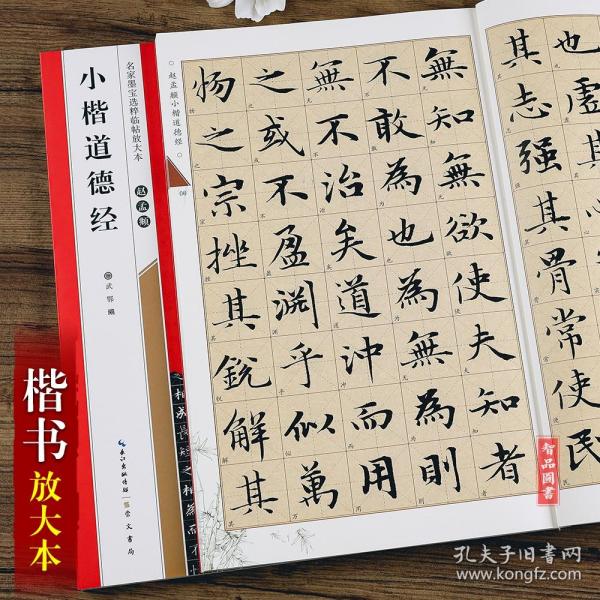 名家墨宝选粹临帖放大本
小楷道德经
赵孟頫
武鄂 編
长江出版传媒
崇文書局
楷书
放大本
赵孟頫小楷道德经
也虛
其志強其骨常使民
無知無欲使夫知者
不敢為也為無為則
無不治矣道沖而用
之或不盈淵乎似萬
物之宗挫其銳解其
相成長短之相為而不
智品圖書
孔夫子旧书网
www.kongfz.com